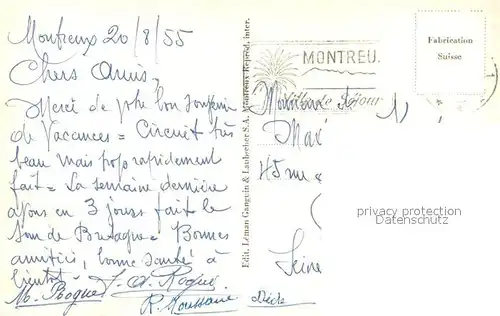 Montreux 20/8/55
Chers Amis,
Merci de votre bon souvenir
de Vacances = Circuit très
beau mais trop rapidement
fait = La semaine dernière
avons en 3 jours fait le
tour de Bretagne = Bonnes
amitiés, bonne santé à
bientôt
M. Roques
R. Moussaue
Edit. Léman Ganguin & Laubscher S.A. Montreux Reprod. inter.
MONTREU.
Séjour
Fabrication
Suisse
45 rue
Seine
privacy protection
Datenschutz